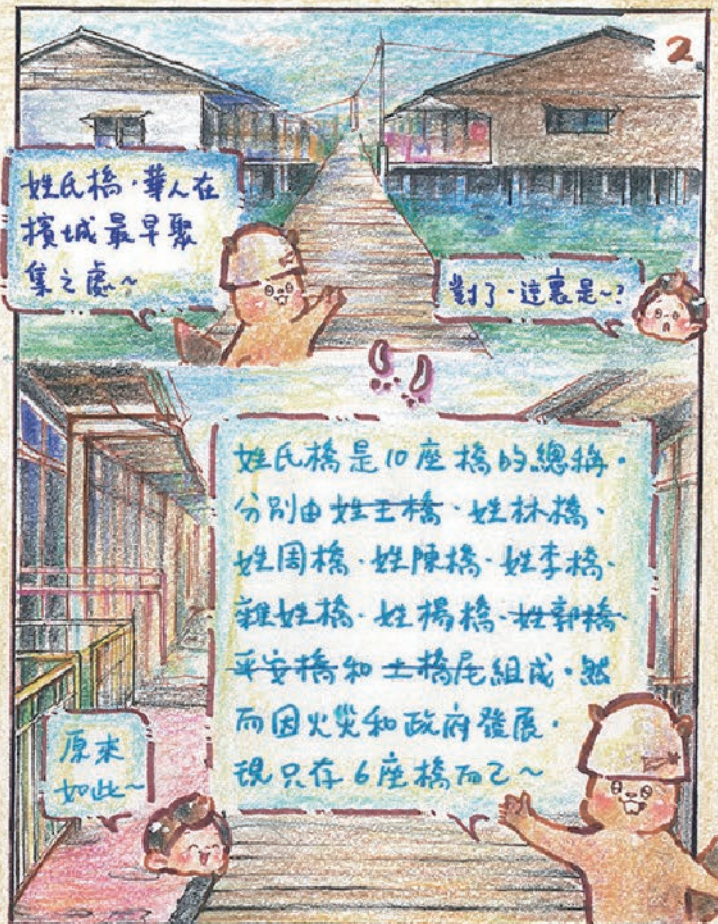 2
姓氏橋，華人在
檳城最早聚
集之處～
對了，這裏是～？
姓氏橋是10座橋的總稱，
分別由姓王橋、姓林橋、
姓周橋、姓陳橋、姓李橋、
雜姓橋、姓楊橋、姓郭橋、
平安橋和土橋尾組成，然
而因火災和政府發展，
現只存6座橋而已～
原來
如此～